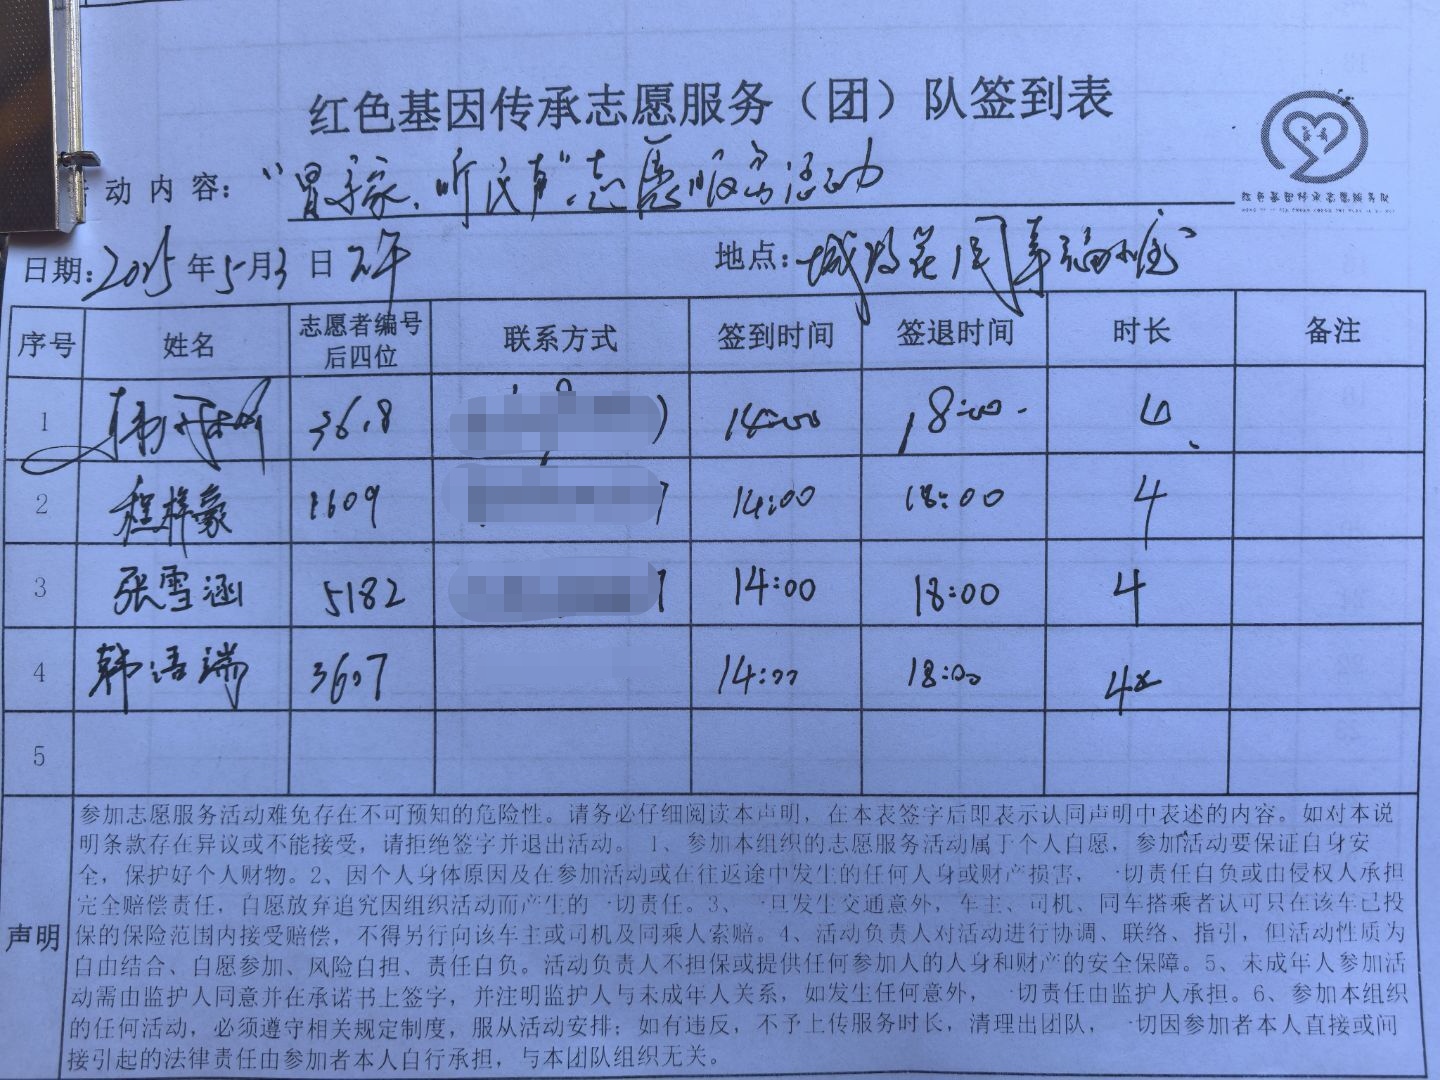 红色基因传承志愿服务（团）队签到表
动内容：“冒 家、听 ”志愿服务活动
红色基因传承志愿服务队
日期：2025年5月3日 地点：城
序号 姓名 志愿者编号后四位 联系方式 签到时间 签退时间 时长 备注
1 韩 3618 14:00 18:00 4
2 程梓豪 1609 14:00 18:00 4
3 张雪涵 5182 14:00 18:00 4
4 韩语端 3607 14:00 18:00 4
5
声明
参加志愿服务活动难免存在不可预知的危险性。请务必仔细阅读本声明，在本表签字后即表示认同声明中表述的内容。如对本说
明条款存在异议或不能接受，请拒绝签字并退出活动。1、参加本组织的志愿服务活动属于个人自愿，参加活动要保证自身安
全，保护好个人财物。2、因个人身体原因及在参加活动或在往返途中发生的任何人身或财产损害，一切责任自负或由侵权人承担
完全赔偿责任，自愿放弃追究因组织活动而产生的一切责任。3、一旦发生交通意外，车主、司机、同车搭乘者认可只在该车已投
保的保险范围内接受赔偿，不得另行向该车主或司机及同乘人索赔。4、活动负责人对活动进行协调、联络、指引，但活动性质为
自由结合、自愿参加、风险自担、责任自负。活动负责人不担保或提供任何参加人的人身和财产的安全保障。5、未成年人参加活
动需由监护人同意并在承诺书上签字，并注明监护人与未成年人关系，如发生任何意外，一切责任由监护人承担。6、参加本组织
的任何活动，必须遵守相关规定制度，服从活动安排；如有违反，不予上传服务时长，清理出团队，一切因参加者本人直接或间
接引起的法律责任由参加者本人自行承担，与本团队组织无关。